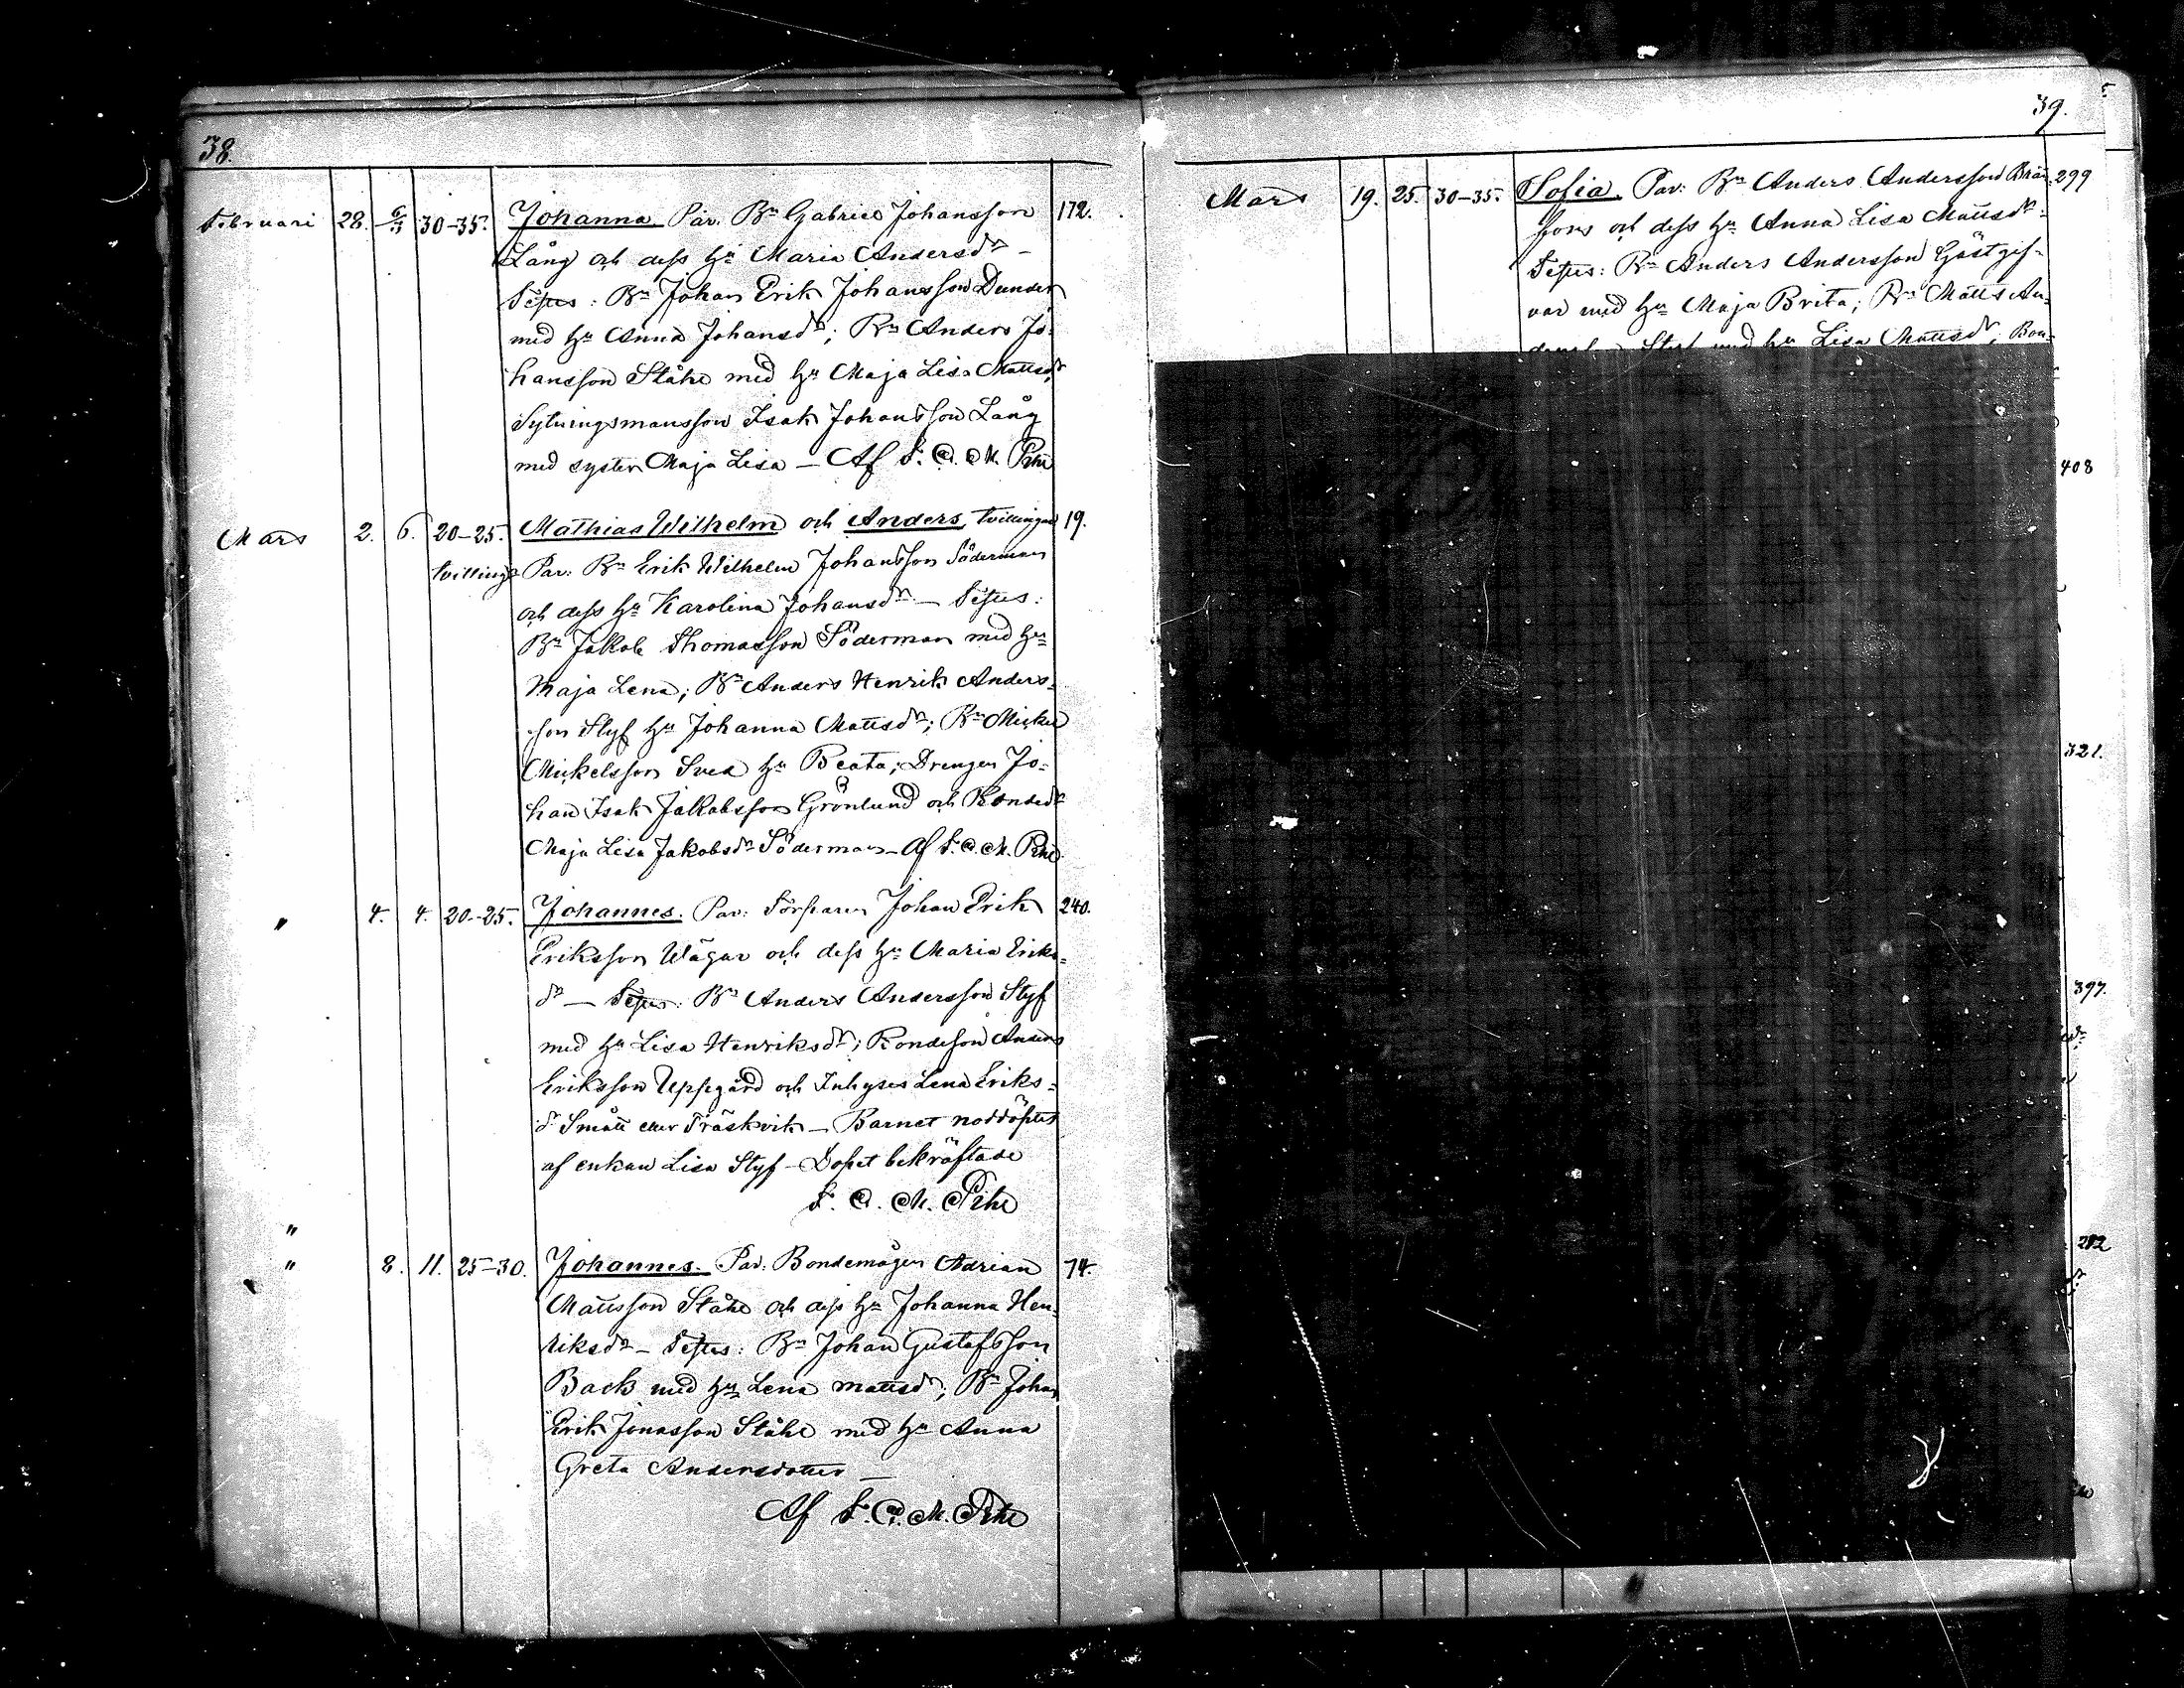 38.
Februari 28. 6/3 30–35. Johanna. Par. Bn Gabriel Johansson 172.
Lång och dess hu Maria Andersdr –
Testes: Bn Johan Erik Johansson Dunder
med hu Anna Johansdr; Bn Anders Jo-
hansson Ståhl med hu Maja Lisa Mattsdr,
Sytningsmansson Isak Johansson Lång
med syster Maja Lisa – Af F. O. M. Pihl
Mars 2. 6. 20–25. Mathias Wilhelm och Anders, tvillingar 19.
tvilling Par: Bn Erik Wilhelm Johansson Söderman
och dess hu Karolina Johansdr – Testes:
Bn Jakob Thomasson Söderman med hu
Maja Lena; Bn Anders Henrik Anders-
son Styf hu Johanna Mattsdr; Bn Mickel
Mickelsson Svea hu Beata; Drengen Jo-
han Isak Jakobsson Grönlund och Bondedr
Maja Lisa Jakobsdr Söderman – Af F. O. M. Pihl
" 4. 4. 20–25. Johannes. Par: Torparen Johan Erik 240.
Eriksson Wägar och dess hu Maria Eriks-
dr – Testes: Bn Anders Andersson Styf
med hu Lisa Henriksdr; Bondeson Anders
Eriksson Uppgård och Inhyses Lena Eriks-
dr Smått eller Träskvik – Barnet nöddöptes
af enkan Lisa Styf – Dopet bekräftade
F. O. M. Pihl
"
" 8. 11. 25–30. Johannes. Par: Bondemågen Adrian 74.
Mattsson Ståhl och dess hu Johanna Hen-
riksdr – Testes: Bn Johan Gustafsson
Back med hu Lena Mattsdr; Bn Johan
Erik Jonasson Ståhl med hu Anna
Greta Andersdotter –
Af F. O. M. Pihl
39.
Mars 19. 25. 30–35. Sofia. Par: Bn Anders Andersson Brän- 299
fors och dess hu Anna Lisa Mattsdr.
Testes: Bn Anders Andersson Gästgif-
var med hu Maja Brita; Bn Matts An-
med hu Lisa Mattsdr; Bon-
408
321.
397.
282